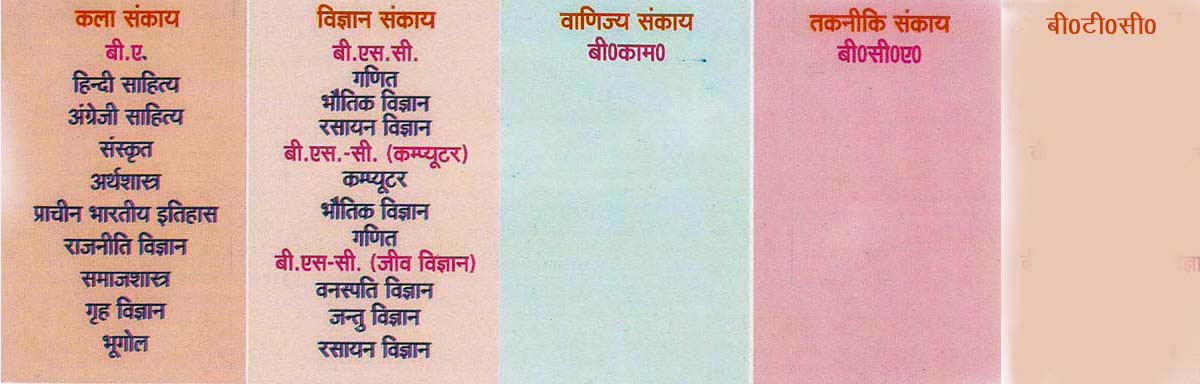 कला संकाय
बी.ए.
हिन्दी साहित्य
अंग्रेजी साहित्य
संस्कृत
अर्थशास्त्र
प्राचीन भारतीय इतिहास
राजनीति विज्ञान
समाजशास्त्र
गृह विज्ञान
भूगोल
विज्ञान संकाय
बी.एस.सी.
गणित
भौतिक विज्ञान
रसायन विज्ञान
बी.एस.-सी. (कम्प्यूटर)
कम्प्यूटर
भौतिक विज्ञान
गणित
बी.एस-सी. (जीव विज्ञान)
वनस्पति विज्ञान
जन्तु विज्ञान
रसायन विज्ञान
वाणिज्य संकाय
बी0काम0
तकनीकि संकाय
बी0सी0ए0
बी0टी0सी0